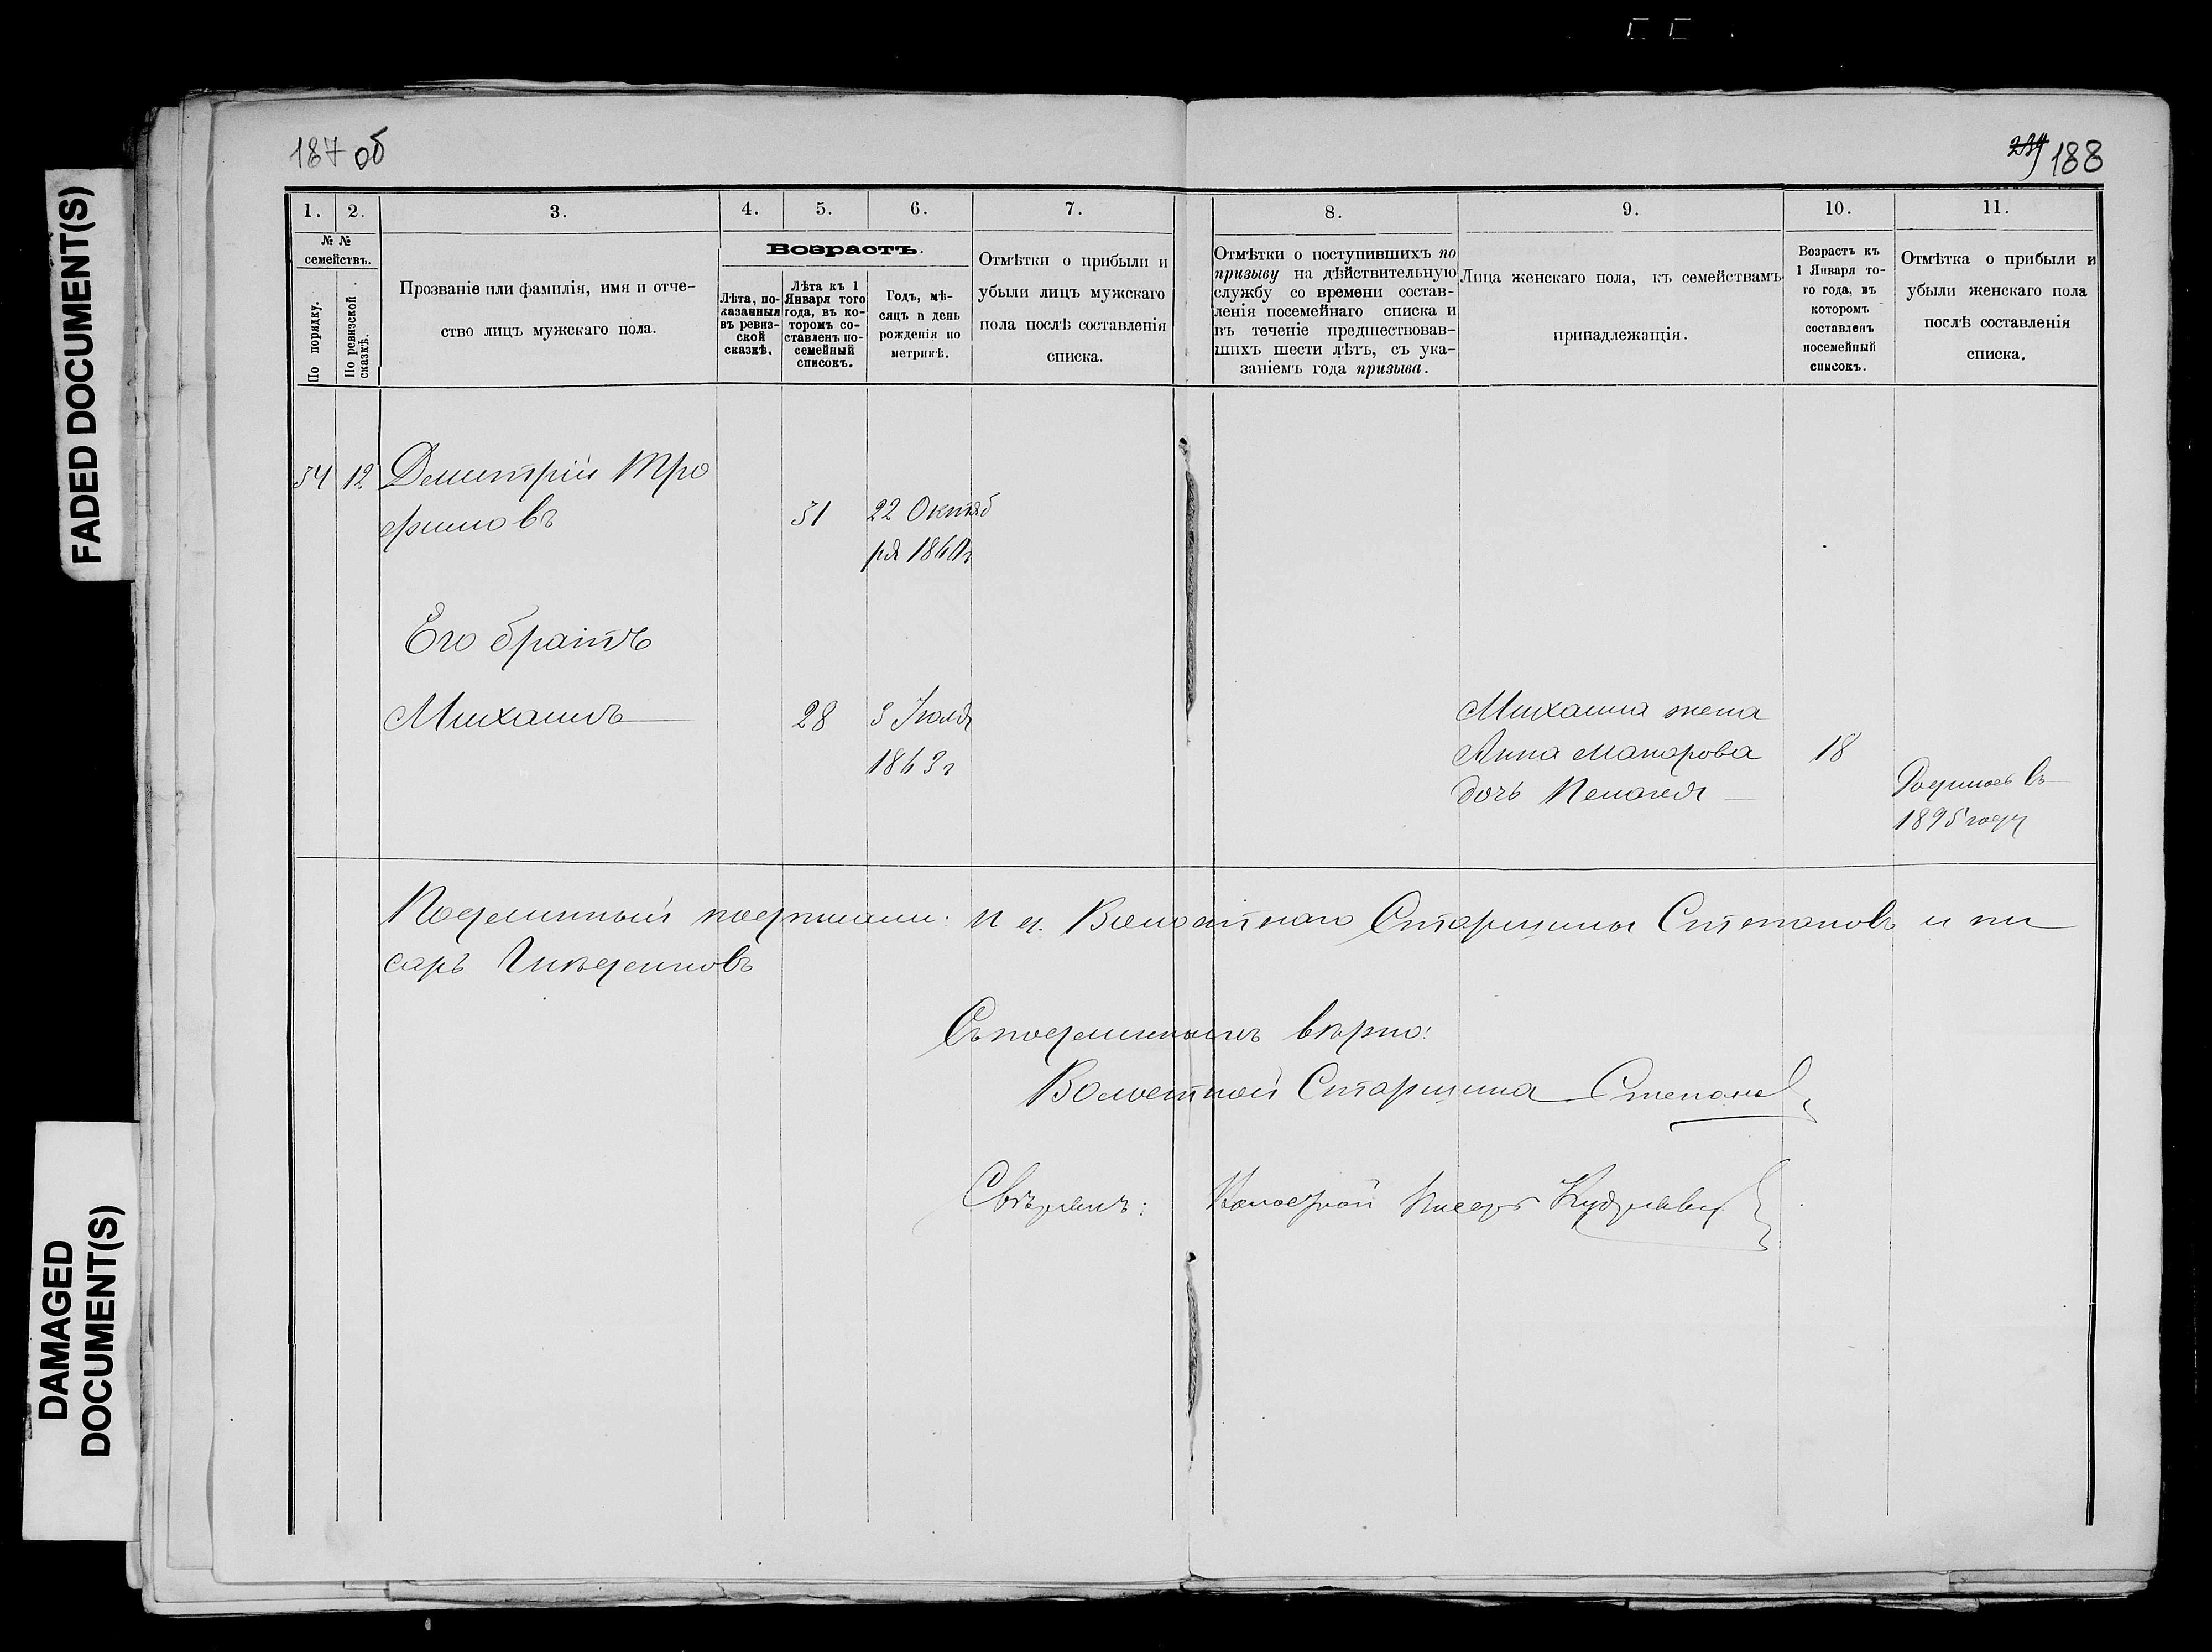 FADED DOCUMENT(S)
DAMAGED
DOCUMENT(S)
187 об
188
1.
2.
3.
4.
5.
6.
7.
8.
9.
10.
11.
№ №
семействъ.
По порядку.
По ревизской
сказкѣ.
Прозваніе или фамилія, имя и отче-
ство лицъ мужскаго пола.
Возрастъ.
Лѣта, по-
казанныя
въ ревиз-
ской
сказкѣ.
Лѣта къ 1
Января того
года, въ ко-
торомъ со-
ставленъ по-
семейный
списокъ.
Годъ, мѣ-
сяцъ и день
рожденія по
метрикѣ.
Отмѣтки о прибыли и
убыли лицъ мужскаго
пола послѣ составленія
списка.
Отмѣтки о поступившихъ по
призыву на дѣйствительную
службу со времени состав-
ленія посемейнаго списка и
въ теченіе предшествовав-
шихъ шести лѣтъ, съ ука-
заніемъ года призыва.
Лица женскаго пола, къ семействамъ
принадлежащія.
Возрастъ къ
1 Января то-
го года, въ
которомъ
составленъ
посемейный
списокъ.
Отмѣтка о прибыли и
убыли женскаго пола
послѣ составленія
списка.
54 12 Дмитрій Тро
фимовъ 31 22 Октяб
ря 1860г
Его братъ
Михаилъ 28 5 Іюля
1863г
Михаила жена
Анна Макарова 18
дочь Пелагея
Родилась въ
1895 году
Подлинный подписали: И д. Волостнаго Старшины Степановъ и пи
сарь
Съ подлиннымъ вѣрно:
Волостной Старшина Степановъ
Свѣрялъ: Волостной Писарь